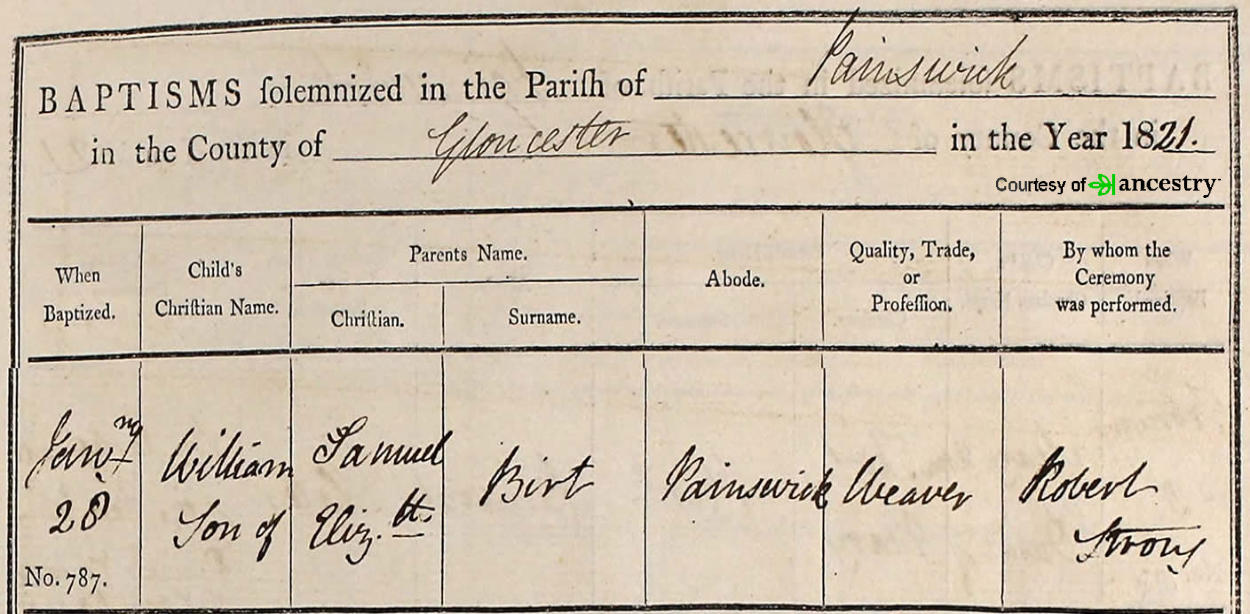 BAPTISMS ſolemnized in the Pariſh of Painswick
in the County of Gloucester in the Year 1821.
Courtesy of ancestry
When Baptized.
Child's Chriſtian Name.
Parents Name.
Chriſtian.
Surname.
Abode.
Quality, Trade, or Profeſſion.
By whom the Ceremony was performed.
Janry 28
No. 787.
William Son of
Samuel Eliz.th
Birt
Painswick
Weaver
Robert Strong